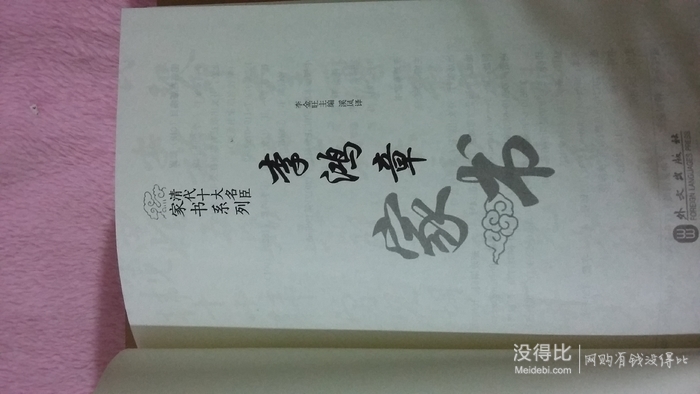 清代十大名臣
家书系列
李金旺主编
李鸿章
家书
外文出版社
没得比
Meidebi.com
网购有钱没得比